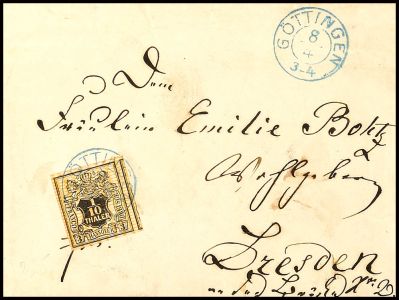 GÖTTINGEN
8
4
3-4
Dem
Fräulein Emilie
Wohlgeboren
GÖTTIN
1
10
THALER
Dresden